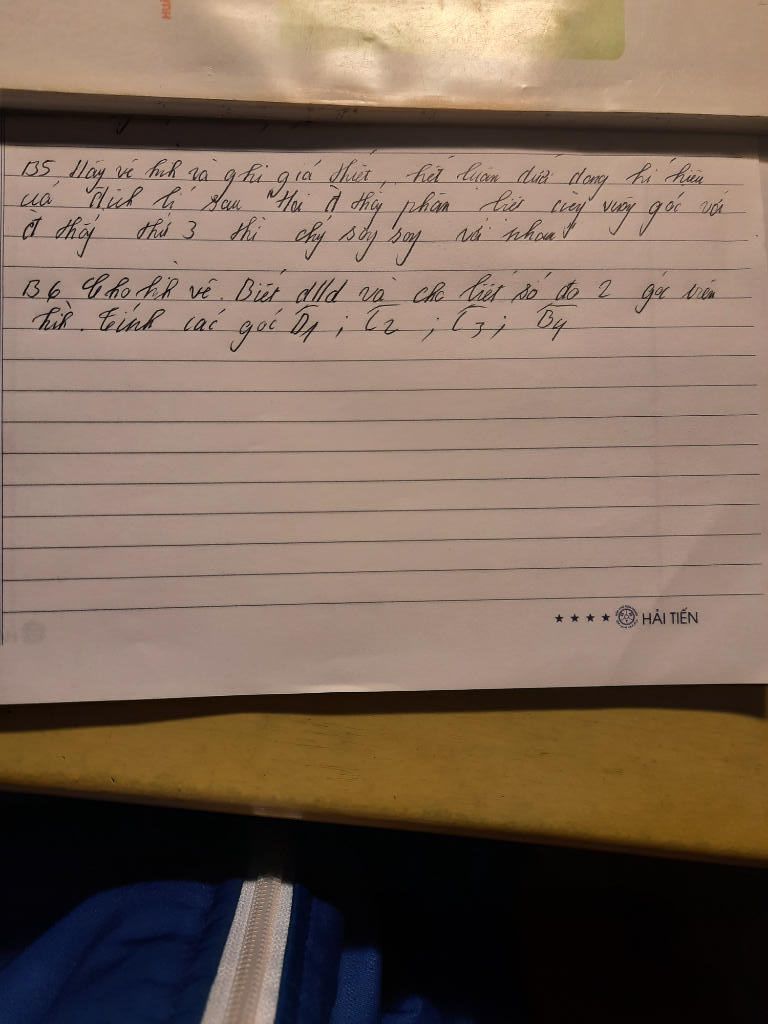 B5 Hãy vẽ hình và ghi giả thiết, kết luận dưới dạng kí hiệu
của định lí sau "Hai đ thẳng phân biệt cùng vuông góc với
đ thẳng thứ 3 thì chúng song song với nhau"
B6 Cho hình vẽ. Biết d//d và cho biết số đo 2 góc trên
hình. Tính các góc D1 ; C2 ; C3 ; B4
★ ★ ★ ★ HẢI TIẾN